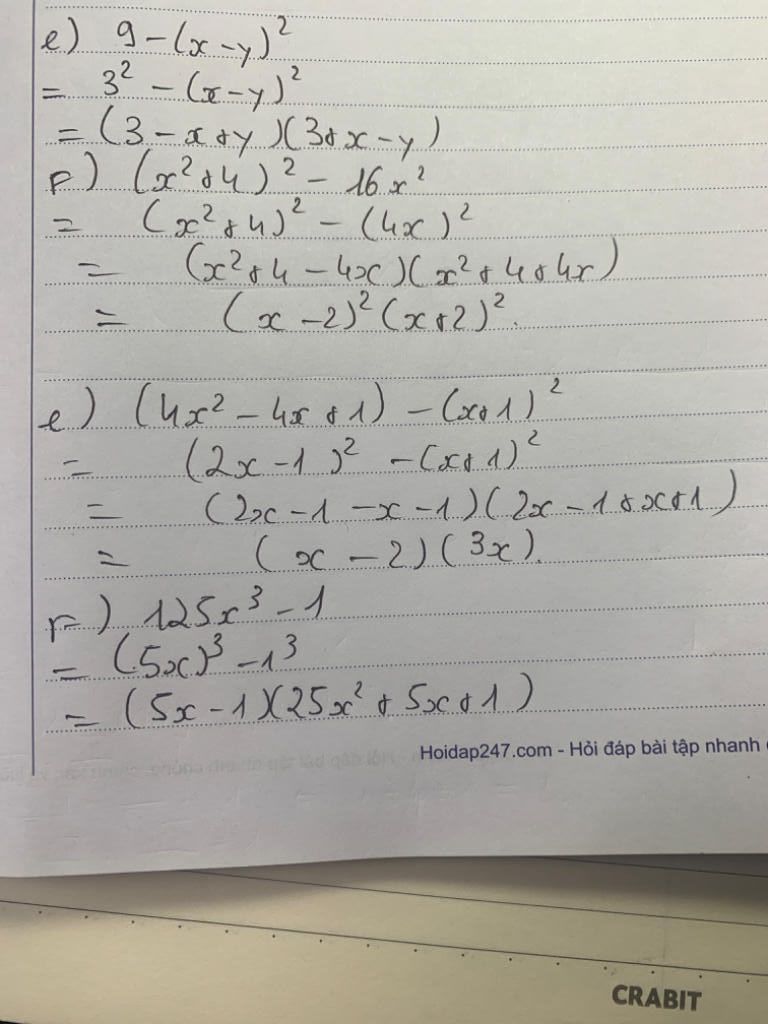 e) 9 - (x - y)²
= 3² - (x - y)²
= (3 - x + y)(3 + x - y)
F) (x² + 4)² - 16x²
= (x² + 4)² - (4x)²
= (x² + 4 - 4x)(x² + 4 + 4x)
= (x - 2)² (x + 2)².
e) (4x² - 4x + 1) - (x + 1)²
= (2x - 1)² - (x + 1)²
= (2x - 1 - x - 1)(2x - 1 + x + 1)
= (x - 2)(3x).
F) 125x³ - 1
= (5x)³ - 1³
= (5x - 1)(25x² + 5x + 1)
Hoidap247.com - Hỏi đáp bài tập nhanh
CRABIT